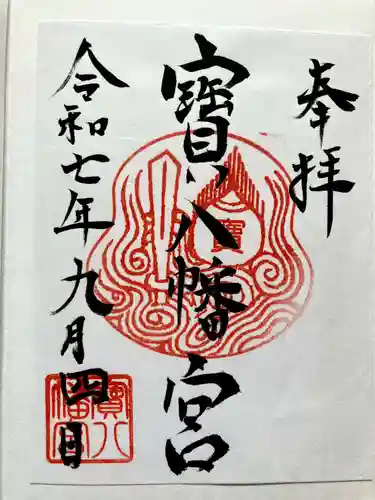 奉拝
寶八幡宮
令和七年九月四日
寶
寶八
幡宮